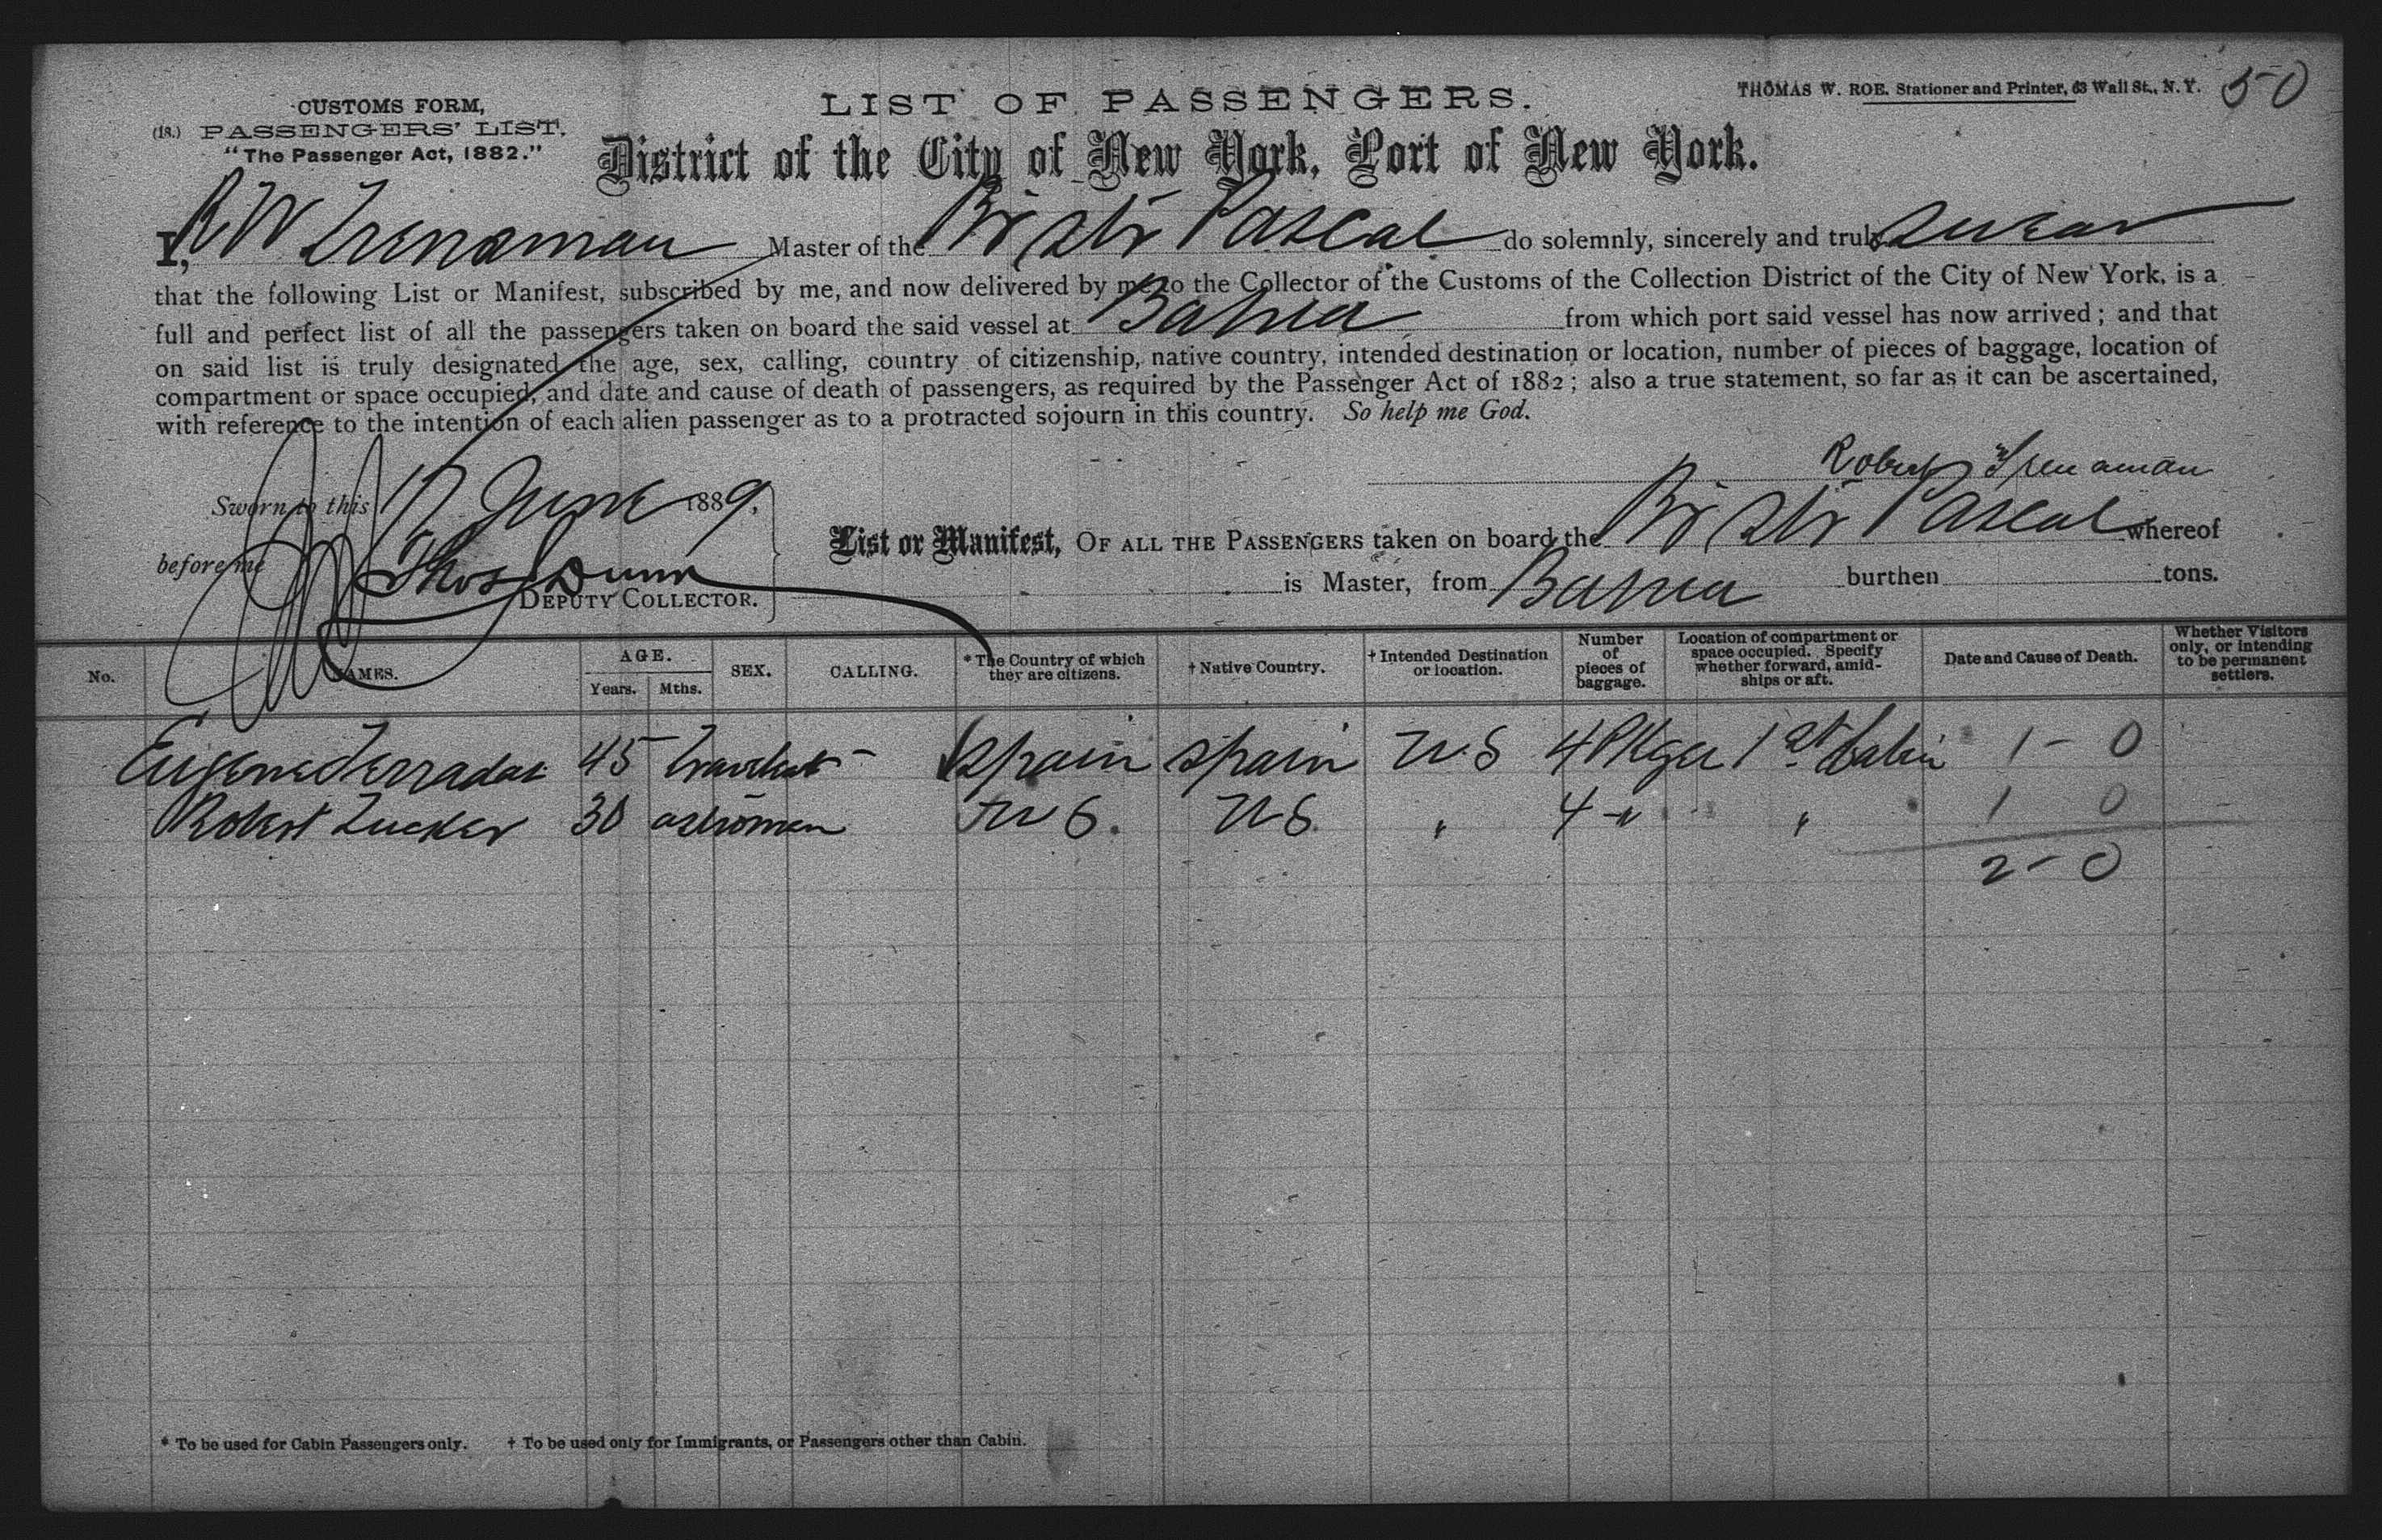 CUSTOMS FORM,
(18.) PASSENGERS' LIST.
"The Passenger Act, 1882."
LIST OF PASSENGERS.
THOMAS W. ROE. Stationer and Printer, 63 Wall St., N.Y.
50
District of the City of New York, Port of New York.
I, R W Trenaman Master of the Br Str Pascal do solemnly, sincerely and truly swear
that the following List or Manifest, subscribed by me, and now delivered by me to the Collector of the Customs of the Collection District of the City of New York, is a
full and perfect list of all the passengers taken on board the said vessel at Bahia from which port said vessel has now arrived; and that
on said list is truly designated the age, sex, calling, country of citizenship, native country, intended destination or location, number of pieces of baggage, location of
compartment or space occupied, and date and cause of death of passengers, as required by the Passenger Act of 1882; also a true statement, so far as it can be ascertained,
with reference to the intention of each alien passenger as to a protracted sojourn in this country. So help me God.
Robert W Trenaman
Sworn to this 17 June 1889,
before me Thos Dunn
DEPUTY COLLECTOR.
List or Manifest, OF ALL THE PASSENGERS taken on board the Br Str Pascal whereof
is Master, from Bahia burthen tons.
No. NAMES. AGE. Years. Mths. SEX. CALLING. * The Country of which they are citizens. † Native Country. † Intended Destination or location. Number of pieces of baggage. Location of compartment or space occupied. Specify whether forward, amidships or aft. Date and Cause of Death. Whether Visitors only, or intending to be permanent settlers.
Eugene Terradas 45 Spain Spain U.S 4 Pkges 1st Cabin 1 - 0
Robert Tucker 30 U S. U S. " 4 " " 1 0
2 - 0
* To be used for Cabin Passengers only. † To be used only for Immigrants, or Passengers other than Cabin.